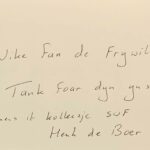 Wike Fan de Frywil
Tank foar dyn
ens it kolleezje SWF
Henk de Boer